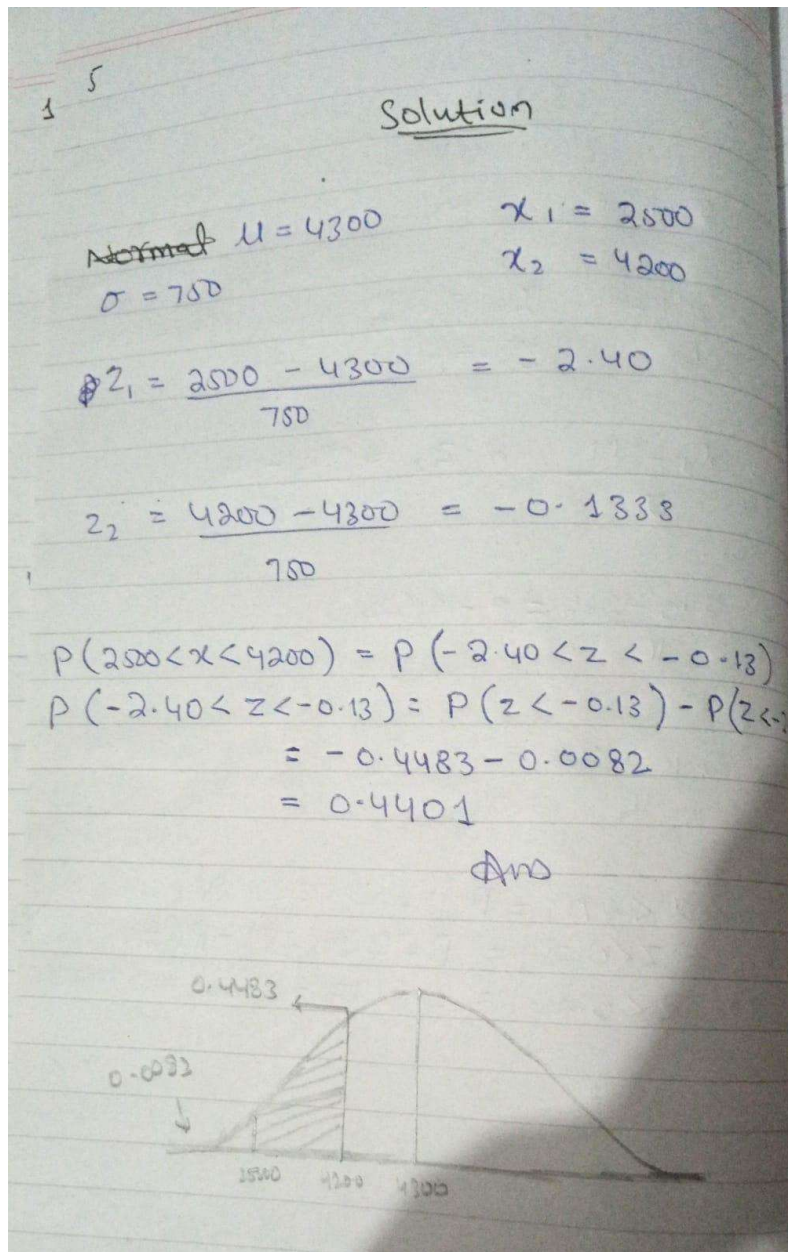 1 5
Solution
Normal μ = 4300 x₁ = 2500
σ = 750 x₂ = 4200
z₁ = 2500 - 4300 = - 2.40
750
z₂ = 4200 - 4300 = - 0.1333
750
P(2500<x<4200) = P(-2.40<z<-0.13)
P(-2.40<z<-0.13) = P(z<-0.13) - P(z<-
= - 0.4483 - 0.0082
= 0.4401
Ans
0.4483
0.0082
2500 4200 4300